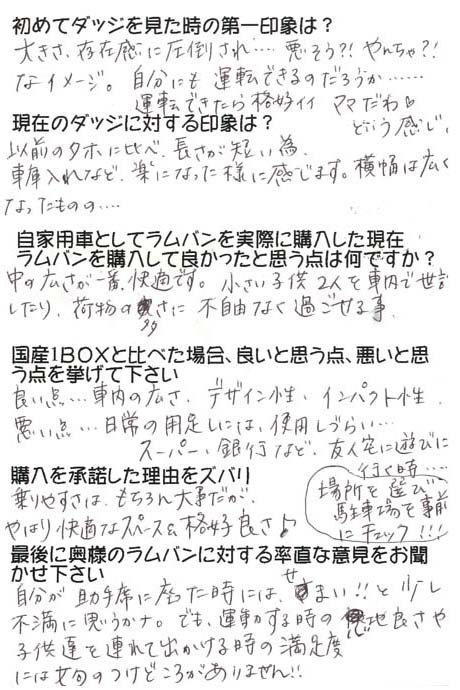 初めてダッジを見た時の第一印象は？
大きさ、存在感に圧倒され…. 悪そう?! やんちゃ?!
なイメージ。自分にも運転できるのだろうか……
運転できたら格好イイ ママだわ♡
現在のダッジに対する印象は？
どいう感じ。
以前のタホに比べ、長さが短い為、
車庫入れなど、楽になった様に感じます。横幅は広く
なったものの….
自家用車としてラムバンを実際に購入した現在
ラムバンを購入して良かったと思う点は何ですか？
中の広さが一番、快適です。小さい子供2人を車内で世話
したり、荷物の多さに不自由なく過ごせる事、
国産1BOXと比べた場合、良いと思う点、悪いと思
う点を挙げて下さい
良い点…車内の広さ、デザイン性、インパクト性、
悪い点…日常の用足しには、使用しづらい…
スーパー、銀行など、友人宅に遊びに
行く時….
購入を承諾した理由をズバリ
乗りやすさは、もちろん大事だが、
やはり快適なスペース&格好良さ♪
場所を選び
駐車場を事前
にチェック!!!
最後に奥様のラムバンに対する率直な意見をお聞
かせ下さい
自分が助手席に座った時には、せまい!!と少し
不満に思うカナ。でも、運転する時の心地良さや
子供達を連れて出かける時の満足度
には文句のつけどころがありません!!